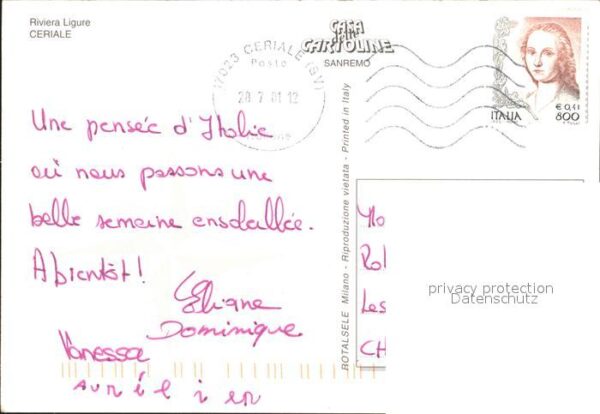 Riviera Ligure
CERIALE
CASA
delle
CARTOLINE
SANREMO
17023 CERIALE (SV)
Poste
28.7.01 12
ITALIA
€ 0,41
800
Une pensée d'Italie
où nous passons une
belle semaine ensoleillée.
A bientôt!
Eliane
Dominique
Vanessa
aurélien
ROTALSELE Milano - Riproduzione vietata - Printed in Italy
Les
CH
privacy protection
Datenschutz